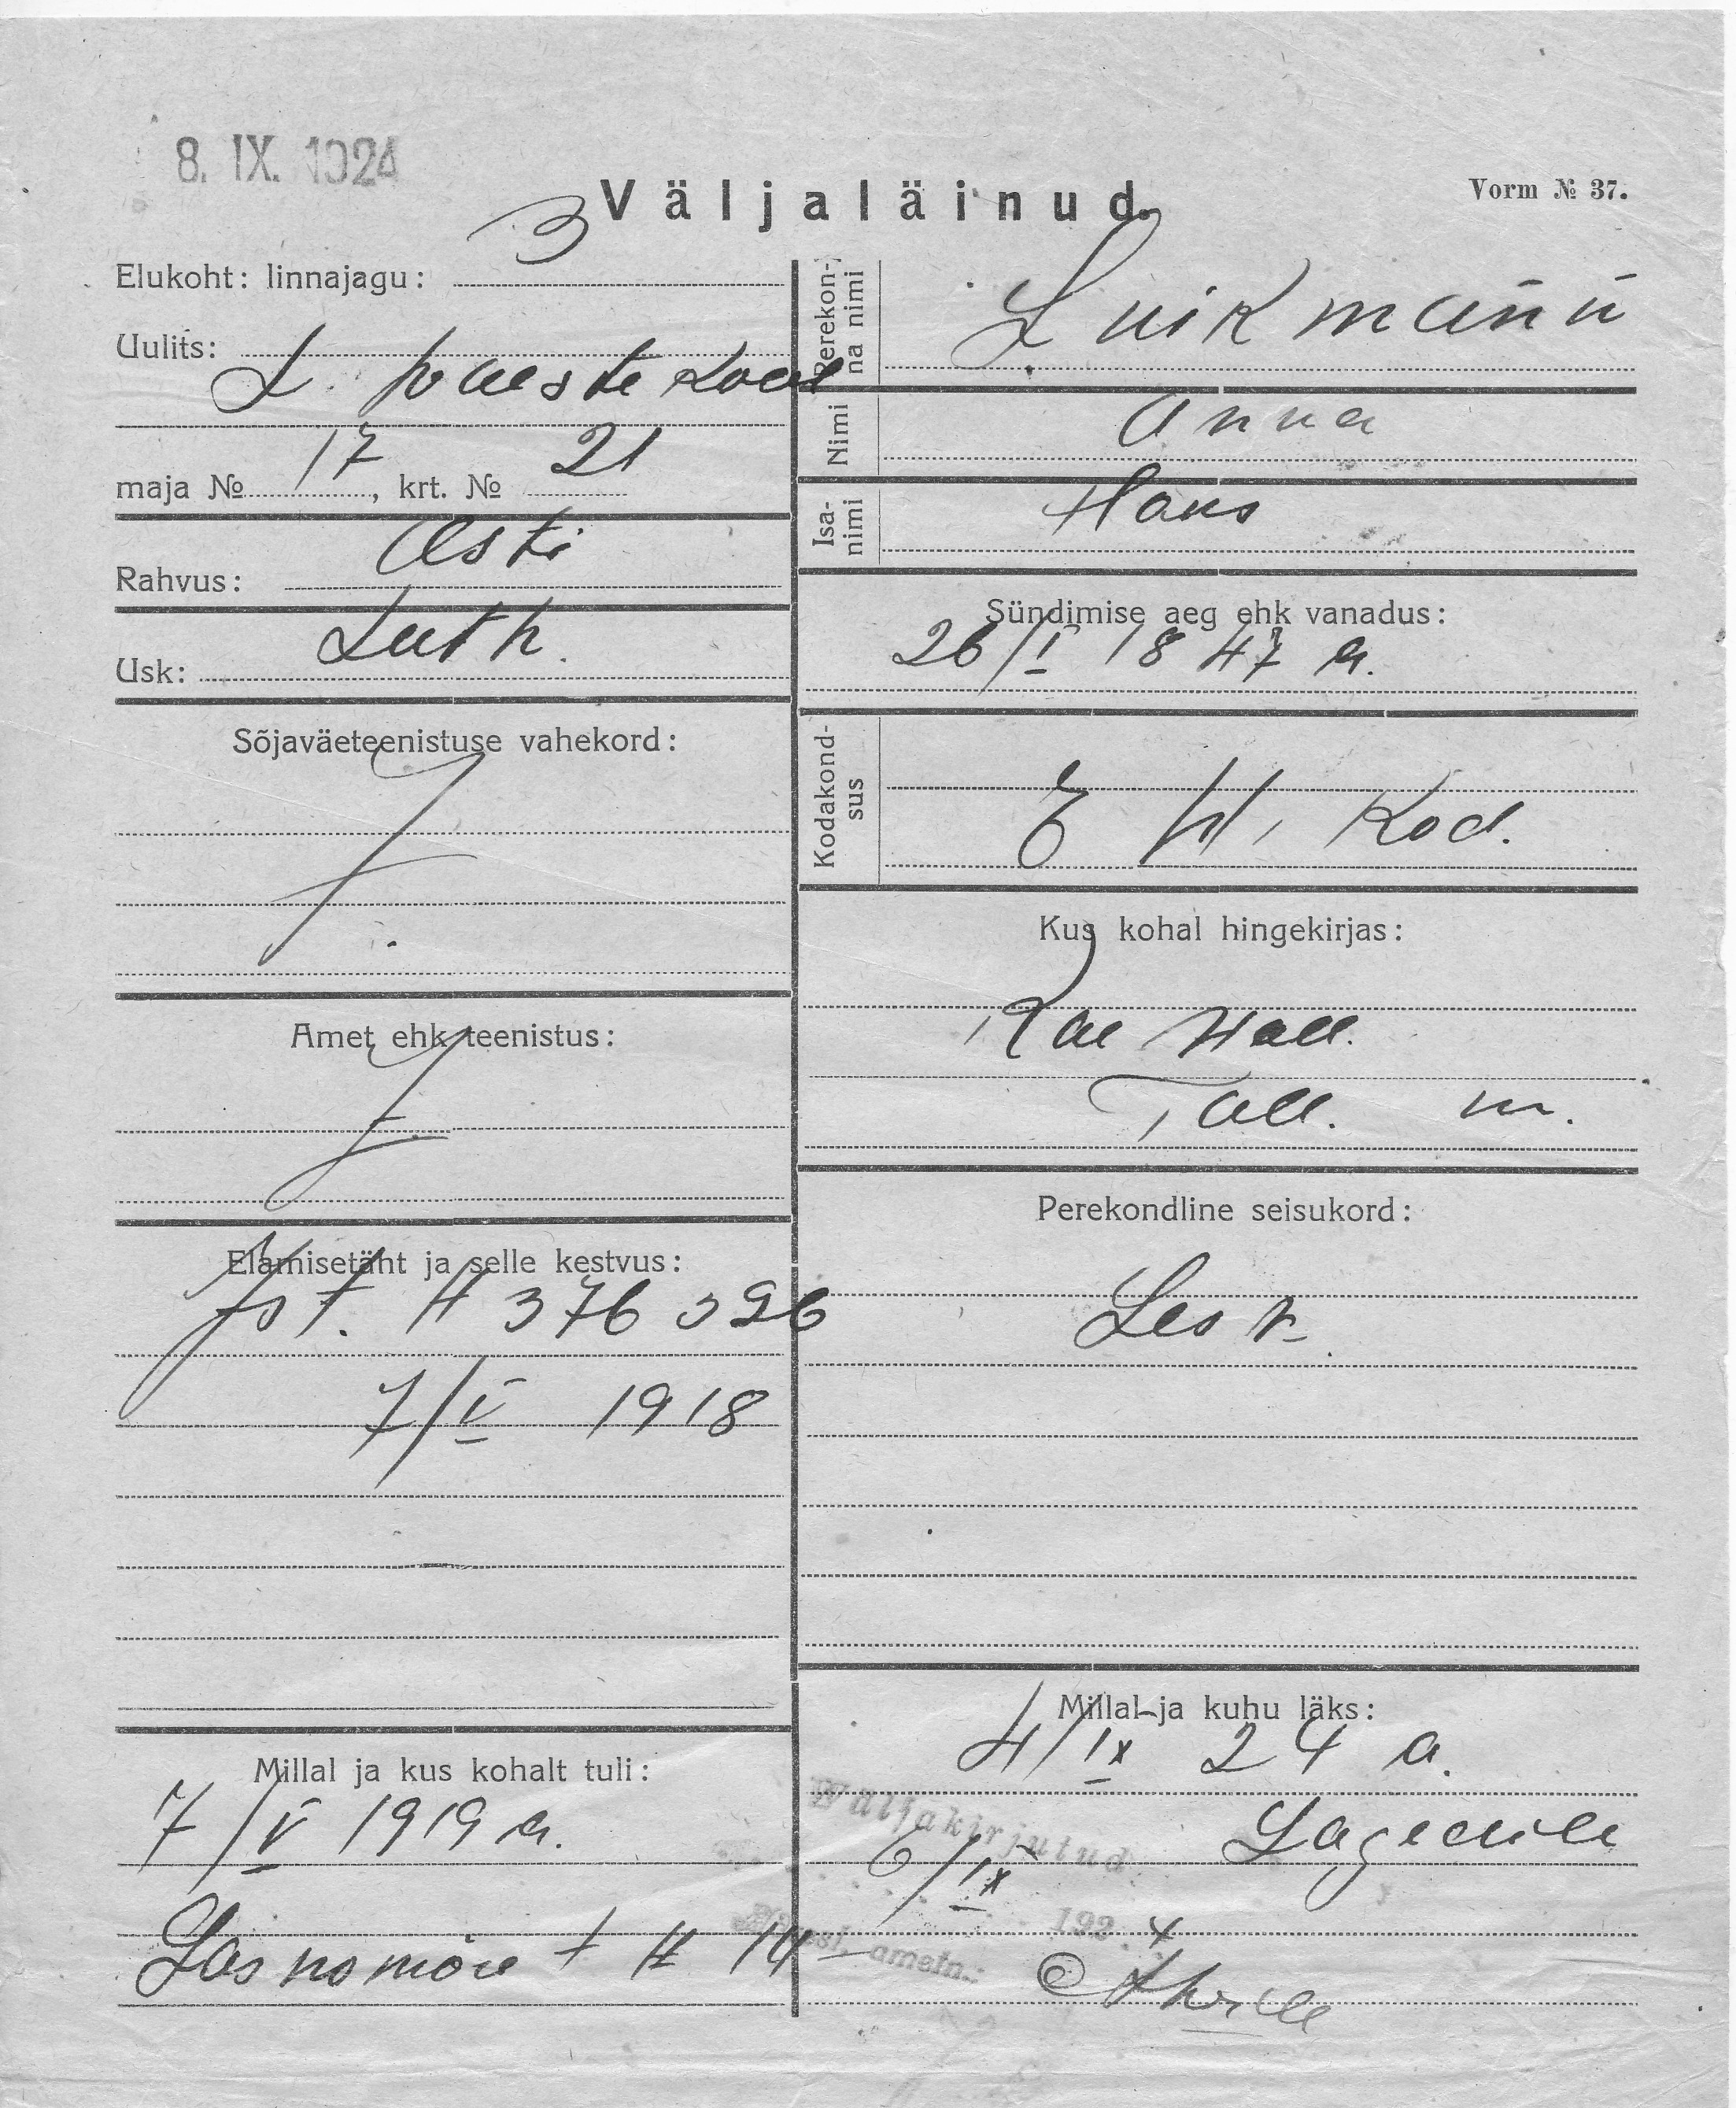 8. IX. 1924
Väljaläinud.
Vorm № 37.
Elukoht: linnajagu: 3
Uulits:
L. paeste kael
maja № 17, krt. № 21
Rahvus: Esti
Usk: Luth.
Sõjaväeteenistuse vahekord:
Amet ehk teenistus:
Elamisetäht ja selle kestvus:
№ 376 396
7/V 1918
Millal ja kus kohalt tuli:
7/V 1919 a.
Lasnamäe t № 14
Perekonna nimi
Luikmann
Nimi
Anna
Isanimi
Hans
Sündimise aeg ehk vanadus:
26/I 1847 a.
Kodakondsus
E W. Kod.
Kus kohal hingekirjas:
Rae Wall.
Tall. m.
Perekondline seisukord:
Lesk
Millal ja kuhu läks:
4/IX 24 a.
Lagedile
Wäljakirjutud
6/IX
192.4
ametn.: